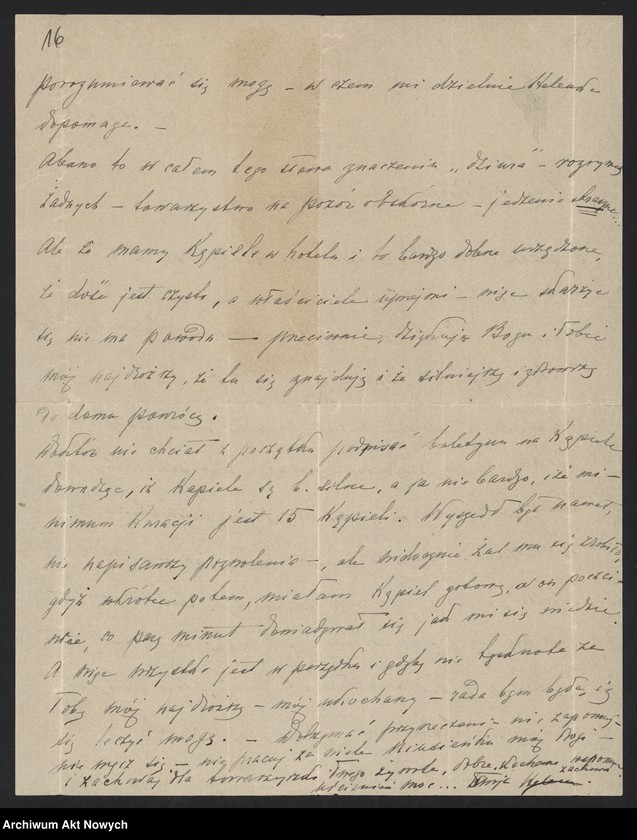 16
porozumiewać się mogę – w czem mi dzielnie Helenka
dopomaga. –
Abano to w całem tego słowa znaczeniu „dziura" – rozrywek
żadnych – towarzystwo na pozór obskórne – jedzenie
Ale że mamy Kąpiele w hotelu i to bardzo dobrze urządzone,
że dość jest czysto, a właściciele uprzejmi – więc skarżyć
się nie ma powodu — przeciwnie, dziękuję Bogu i Tobie
mój najdroższy, że tu się znajduję i że silniejszą i zdrowszą
do domu powrócę.
Doktór nie chciał z początku podpisać buletynu na Kąpiele
dowodząc, iż Kąpiele są b. silne, a ja nie bardzo, i że mi-
nimum Kuracji jest 15 Kąpieli. Wyszedł był nawet,
nie napisawszy pozwolenia –, ale widocznie żal mu się zrobiło,
gdyż wkrótce potem, miałam Kąpiel gotową, a on poczci-
wiec, co parę minut dowiadywał się jak mi się wiedzie
A więc wszystko jest w porządku i gdyby nie tęsknota za
Tobą mój najdroższy – mój ukochany – rada bym była, iż
się leczyć mogę. – Dotrzymać przyrzeczenia nie zapomij –
nie męcz się – nie pracuj za wiele mój drogi –
i zachowaj dla towarzyszki Twego żywota, dobre, Kochane wspom-
uściśnień moc... Twoja Helena